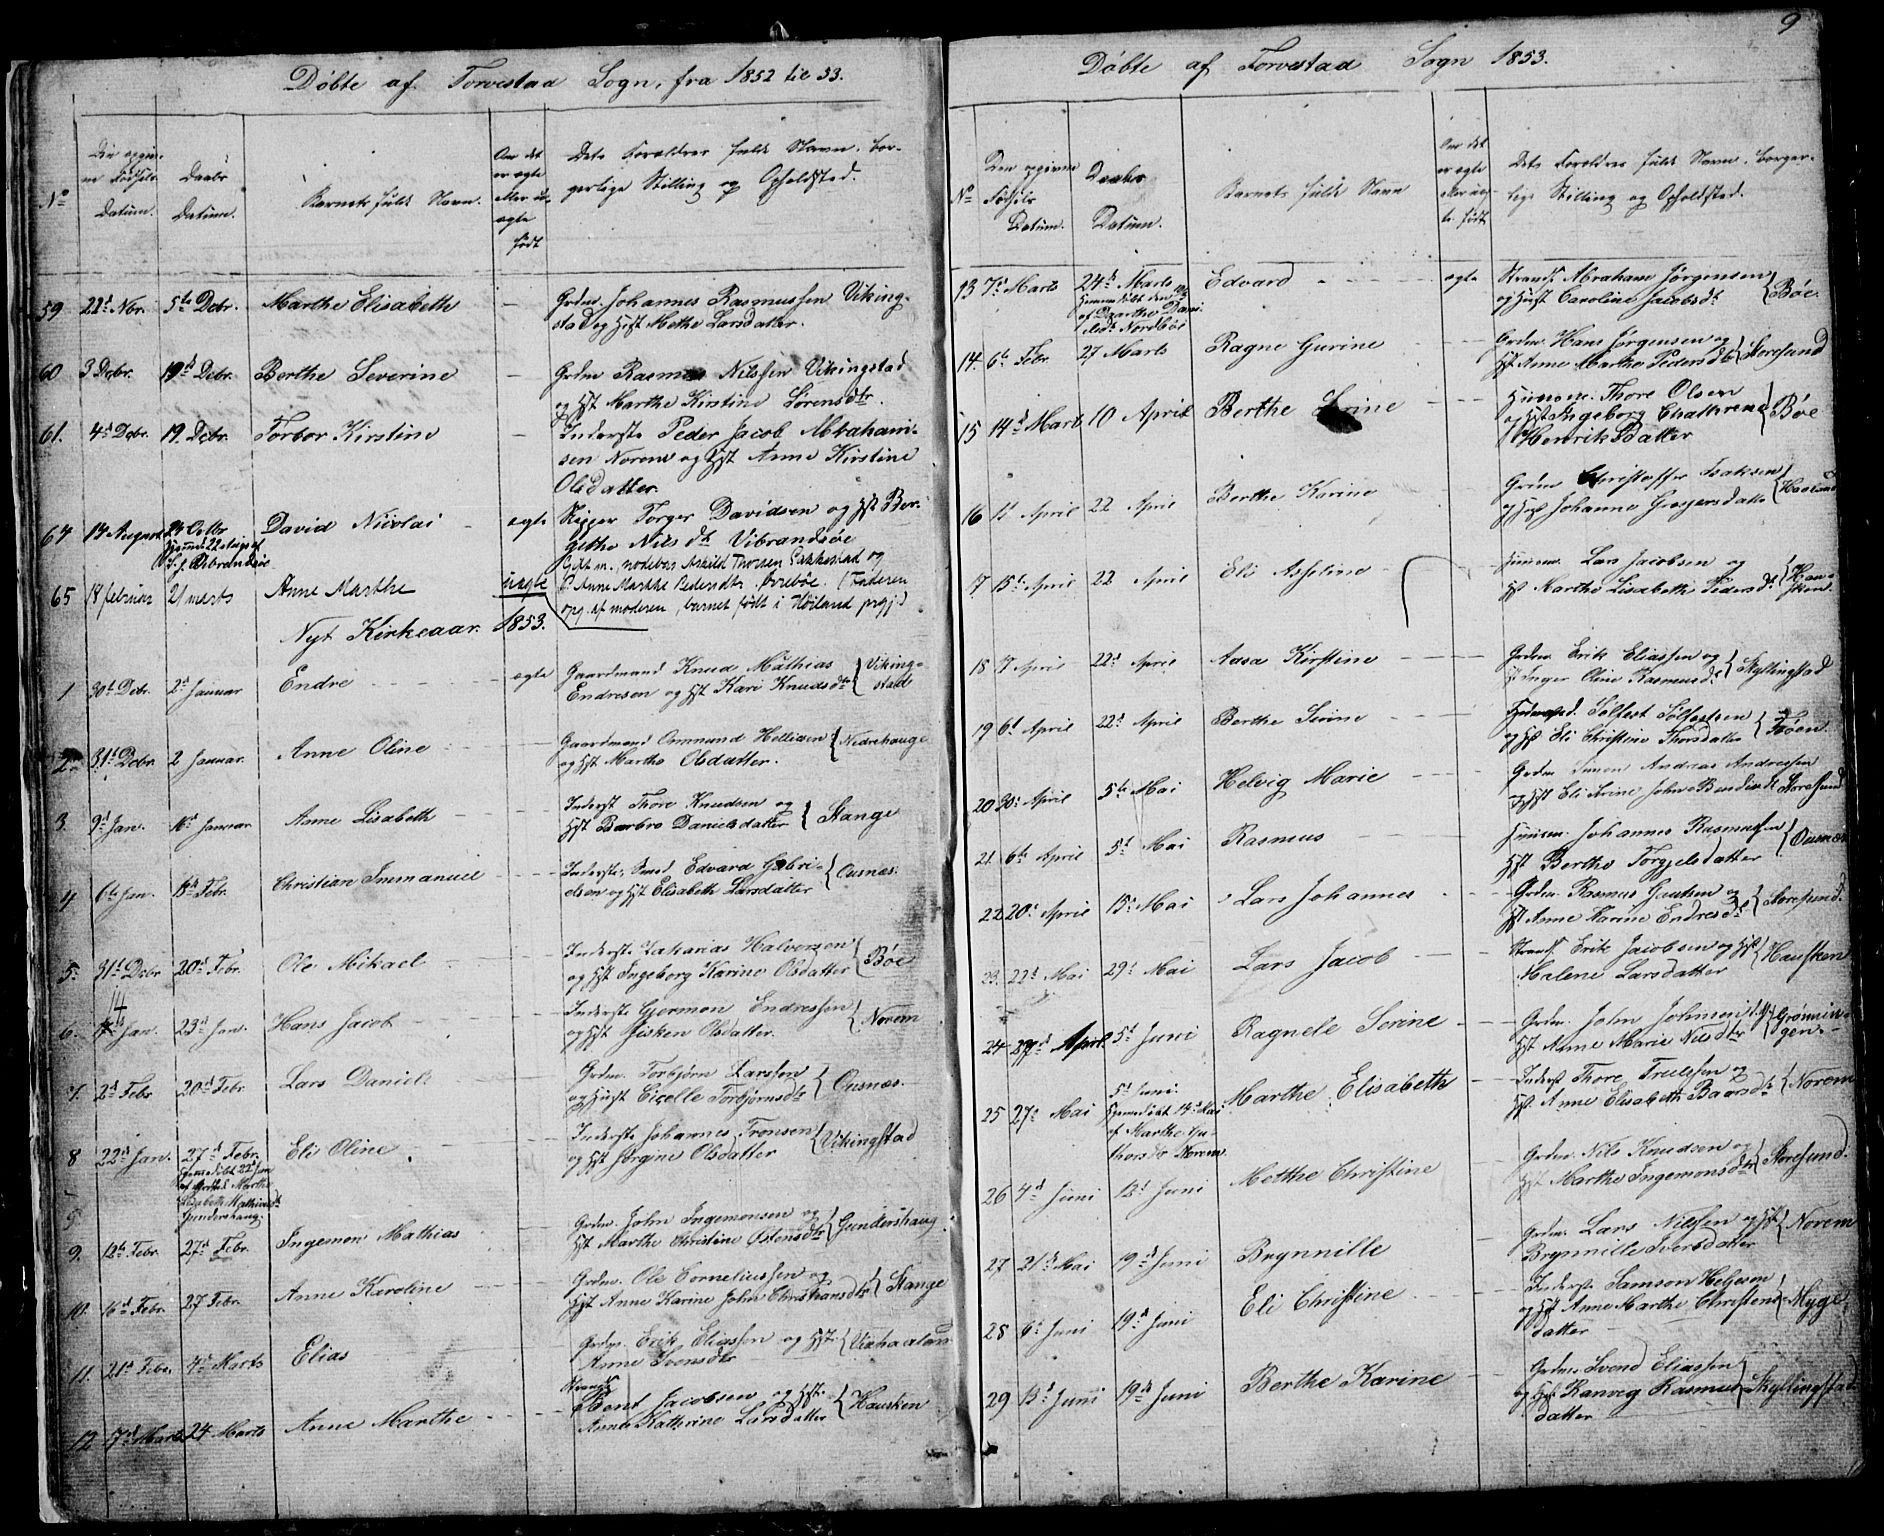 Døbte af Torvestad Sogn, fra 1852 til 53.
No
Den opgivne Fødsels Datum.
Daabs Datum.
Barnets fulde Navn.
Om det er ægte eller uægte født
Dets Forældres fulde Navn, borgerlige Stilling og Opholdsted.
59 22d Nbr. 5te Debr. Marthe Elisabeth — Grdm. Johannes Rasmussen Viking-
stad og Hst Methe Larsdatter.
60 3 Debr. 19d Debr. Berthe Severine — Grdm Rasmus Nilssen Vikingstad
og Hst Marthe Kirstine Sørensdtr.
61. 4d Debr. 19. Debr. Torbor Kirstine — Inderste Peder Jacob Abraham-
sen Norem og Hst Anne Kirstine
Olsdatter.
64 14 August 24 Octbr David Nicolai - ægte Rigger Torger Davidsen og Hst Ber-
githe Nilsdt. Vibrandsøe
65 18 februar 21 marts Anne Marthe uægte Gift m., nodebas Askild Thorsen Eikkestad og
P. Anne Marthe Pedersdtr. Borebøe. (Faderen
opg. af moderen, barnet født i Høiland prgj.)
Nyt Kirkeaar. 1853.
1 30d Debr. 2d Januar Endre - ægte Gaardmand Knud Mathias
Endresen og Hst Kari Knudsdtr { Viking-
stad
2. 31d Debr. 2 Januar. Anne Oline — Gaardmand Ommund Hellisen { Nedrehauge
og Hst Marthe Olsdatter.
3. 9d Jan. 16d Januar Anne Lisabeth — Inderst Thore Knudsen og
Hst Barbro Danielsdatter { Stange
4 6te Jan. 13d Febr. Christian Immanuel — Inderste, Smed Edvard Gabri-
elsen og Hst Elisabeth Larsdatter { Ousnes.
5. 31d Debr 20d Febr. Ole Mikael — Inderste Zakarias Halvorsen
og Hst Ingeborg Karine Olsdatter { Bøe
14
6. Jan. 23d Jan. Hans Jacob — Inderste Gjermon Endressen
og Hst Sisken Olsdatter. { Norem
7. 2d Febr 20d Febr. Lars Daniel — Grdm. Torbjørn Larssen
og Hust Cicelle Torbjørnsdtr { Ousnæs.
8 22d Jan. 27d Febr. Eli Oline — Inderste Johannes Tronsen
og Hst Jørgine Olsdatter { Vikingstad
Hjemedøbt 22d Jan
Gundershaug.
9. 12te Febr. 27d Febr. Ingemon Mathias — Grdm. John Ingemonsen og
Hst Marthe Christine Østensdtr { Gundershaug
10. 16d Febr. 27 Febr. Anne Karoline — Grdm. Ole Corneliussen og
Hst Anne Karine John Christiansdtr { Stange
11. 21d Febr. 4de Marts Elias — Grdm. Erik Eliassen og Hst {
Anne Svensdtr
12 17d Marts 24 Marts Anne Marthe — Strands.
Berel Jacobsen og Hst.
Anne Kathrine Larsdatter { Hausken
9
Døbte af Torvestad Sogn 1853.
No
Den opgivne Fødsels Datum.
Daabs Datum.
Barnets fulde Navn
Om det er ægte eller uægte født
Dets Forældres fulde Navn, borgerlige Stilling og Opholdsted.
13 7d Marts 24d Marts Edvard — ægte Strands. Abraham Jørgensen
og Hust Caroline Jacobsdt { Bøe.
Nordbøe
14. 6te Febr. 27 Marts Ragne Gurine — Grdm. Hans Jørgensen og
Hst Anne Marthe Pedersdtr { Storesund
15 14d Marts 10 April Berthe Serine — Huusm. Thore Olsen
og Hst Ingeborg Chathrine { Bøe
Henriksdatter
16 1d April 22 April Berthe Karine Grdm Christoffer Isaksen
og Hst Johanne Gregersdatter { Haaland
17 15d April 22 April Eli Asseline — Huusm. Lars Jacobsen og
Hst Marthe Lisabeth Pedersdt { Hau-
sken.
18 7 April 22d April Aasa Kirstine — Grdm. Erik Eliassen og
Hst Inger Oline Rasmusdt { Skyllingstad
19 6d April 22d April Berthe Serine — Sølfest Sølfestsen
og Hst Eli Christine Thorsdatter { Føen.
20 30d April 5te Mai Helvig Marie — Grdm. Simon Andreas Andressen
og Hst Eli Serine John Bendixdt. Storesund
21 6te April 5d Mai Rasmus — Huusm. Johannes Rasmussen
Hst Berthe Torggelsdatter { Ousnæs
22 20d April 15d Mai Lars Johannes — Grdm. Rasmus Gautsen og
Hst Anne Karine Endresdt { Storesund.
23. 22d Mai 29d Mai Lars Jacob — Strands. Erik Jacobsen og Hst
Malene Larsdatter { Hausken
24 27d April 5d Juni Ragnele Serine — Grdm. John Johnsen og { Grønnin-
Hst Anne Marie Nilsdtr gen.
25 27d Mai 5d Juni. Marthe Elisabeth — Inderst Thore Trulssen og
Hst. Anne Elisabeth Baardsdtr { Norem
af Marthe Gu-
thorsdtr Norem
26 4d Juni 12d Juni Methe Christine — Grdm. Nils Knudsen og
Hst Marthe Ingemonsdtr { Storesund.
27 21d Mai 19d Juni Brynnille — Grdm. Lars Nilssen og Hst { Norem
Brynnille Iversdatter
28 6d Juni 19d Juni Eli Christine — Inderste Samson Helgesen
og Hst Anne Marthe Christens- { Myge
datter
29 13d Juni 19de Juni Berthe Karine — Grdm. Svend Eliassen
og Hst Ranveig Rasmus- { Skyllingstad
datter